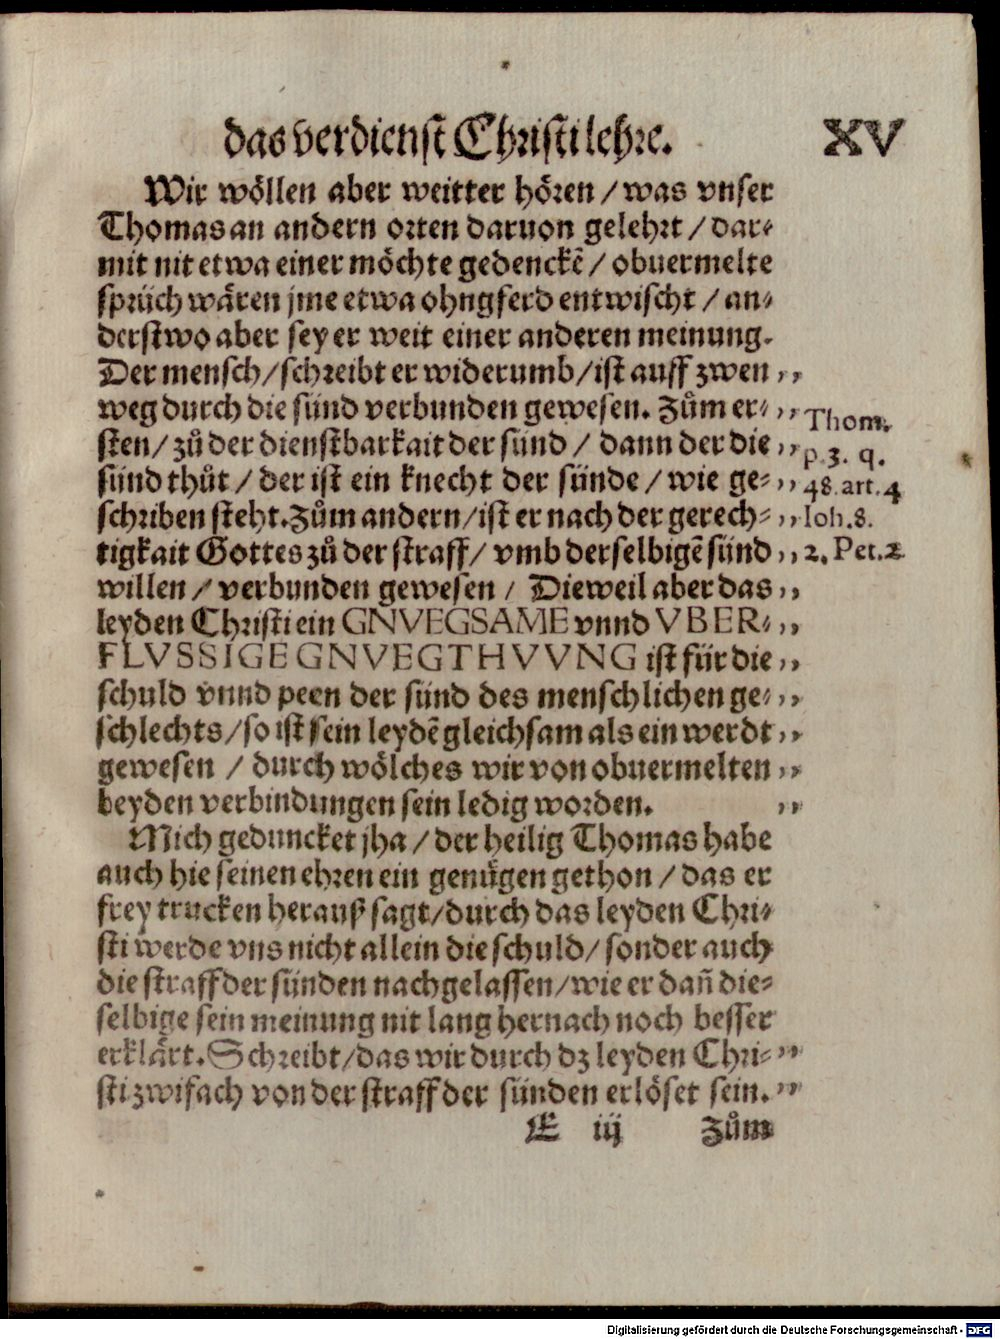 das verdienst Christi lehre. XV
Wir wöllen aber weitter hören / was vnser
Thomas an andern orten daruon gelehrt / dar⸗
mit nit etwa einer möchte gedenckẽ / obuermelte
sprüch wären jme etwa ohngferd entwischt / an⸗
derstwo aber sey er weit einer anderen meinung.
Der mensch / schreibt er widerumb / ist auff zwen ,,
weg durch die sünd verbunden gewesen. Zům er⸗ ,, Thom.
sten / zů der dienstbarkait der sünd / dann der die ,, p. 3. q.
sünd thůt / der ist ein knecht der sünde / wie ge⸗ ,, 48. art. 4
schriben steht. Zům andern / ist er nach der gerech⸗ ,, Ioh. 8.
tigkait Gottes zů der straff / vmb derselbigẽ sünd ,, 2. Pet. 2
willen / verbunden gewesen / Dieweil aber das ,,
leyden Christi ein GNVEGSAME vnnd VBER⸗ ,,
FLVSSIGE GNVEGTHVVNG ist für die ,,
schuld vnnd peen der sünd des menschlichen ge⸗ ,,
schlechts / so ist sein leydẽ gleichsam als ein werdt ,,
gewesen / durch wölches wir von obuermelten ,,
beyden verbindungen sein ledig worden. ,,
Mich geduncket jha / der heilig Thomas habe
auch hie seinen ehren ein genügen gethon / das er
frey trucken herauß sagt / durch das leyden Chri⸗
sti werde vns nicht allein die schuld / sonder auch
die straff der sünden nachgelassen / wie er dañ die⸗
selbige sein meinung nit lang hernach noch besser
erklärt. Schreibt / das wir durch dz leyden Chri⸗ ,,
sti zwifach von der straff der sünden erlöset sein. ,,
E iij Zům
Digitalisierung gefördert durch die Deutsche Forschungsgemeinschaft - DFG